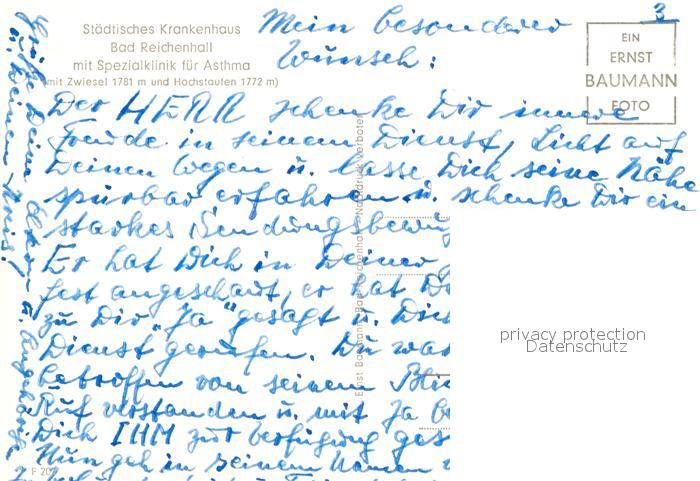 Städtisches Krankenhaus
Bad Reichenhall
mit Spezialklinik für Asthma
(mit Zwiesel 1781 m und Hochstaufen 1772 m)
3
EIN
ERNST
BAUMANN
FOTO
Mein besonderer
Wunsch:
Der HERR schenke Dir innere
Freude in seinem Dienst, Licht auf
Deinen Wegen u. lasse Dich seine Nähe
spürbar erfahren u. schenke Dir ein
starkes Sendungsbewuß
Er hat Dich in Deiner
fest angeschaut, er hat D
zu Dir "Ja" gesagt u. Dich
Dienst gerufen. Du war
betroffen von seinem Bli
Ruf verstanden u. mit Ja b
Dich IHM zur Verfügung ges
Nun geh in seinem Namen
Grüße Deine Eltern u. Angehörige
Ernst Baumann, Bad Reichenhall - Nachdruck verboten
F 20
privacy protection
Datenschutz